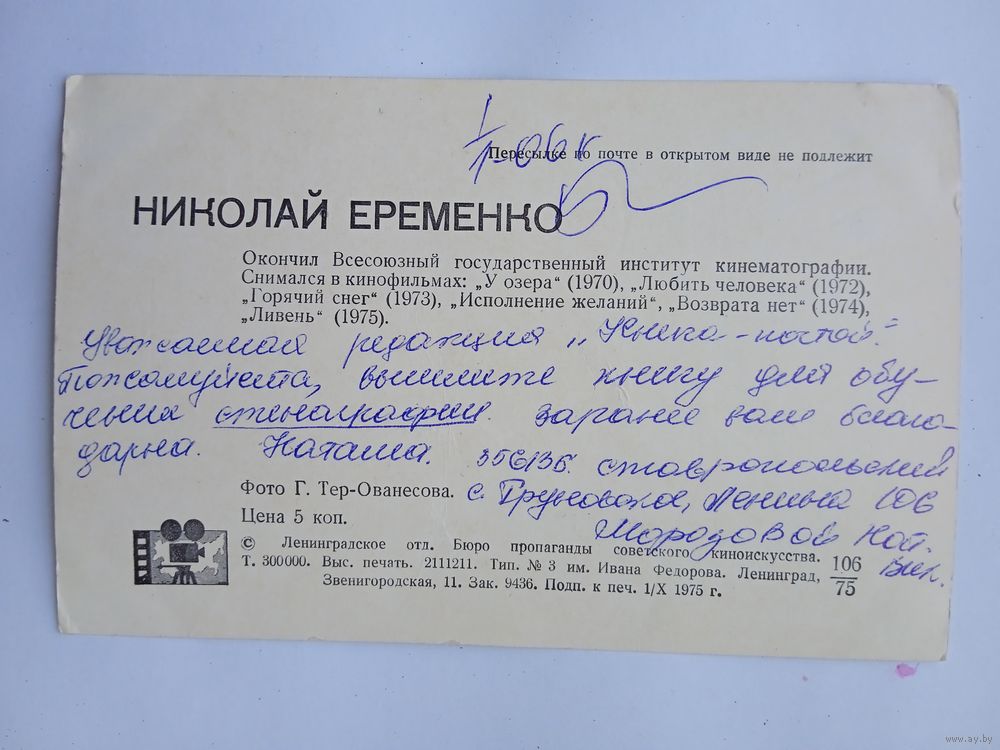 Пересылке по почте в открытом виде не подлежит
НИКОЛАЙ ЕРЕМЕНКО
Окончил Всесоюзный государственный институт кинематографии.
Снимался в кинофильмах: „У озера“ (1970), „Любить человека“ (1972),
„Горячий снег“ (1973), „Исполнение желаний“, „Возврата нет“ (1974),
„Ливень“ (1975).
Уважаемая редакция „Книга-почтой“.
Пожалуйста, вышлите книгу для обу-
чения стенографии. Заранее вам благо-
дарна. Наташа. 356135 Ставропольский
с. Труновское, Ленина 106
Морозовой Нат.
Вик.
Фото Г. Тер-Ованесова.
Цена 5 коп.
© Ленинградское отд. Бюро пропаганды советского киноискусства.
Т. 300000. Выс. печать. 2111211. Тип. № 3 им. Ивана Федорова. Ленинград,
Звенигородская, 11. Зак. 9436. Подп. к печ. 1/X 1975 г.
106
75
www.ay.by